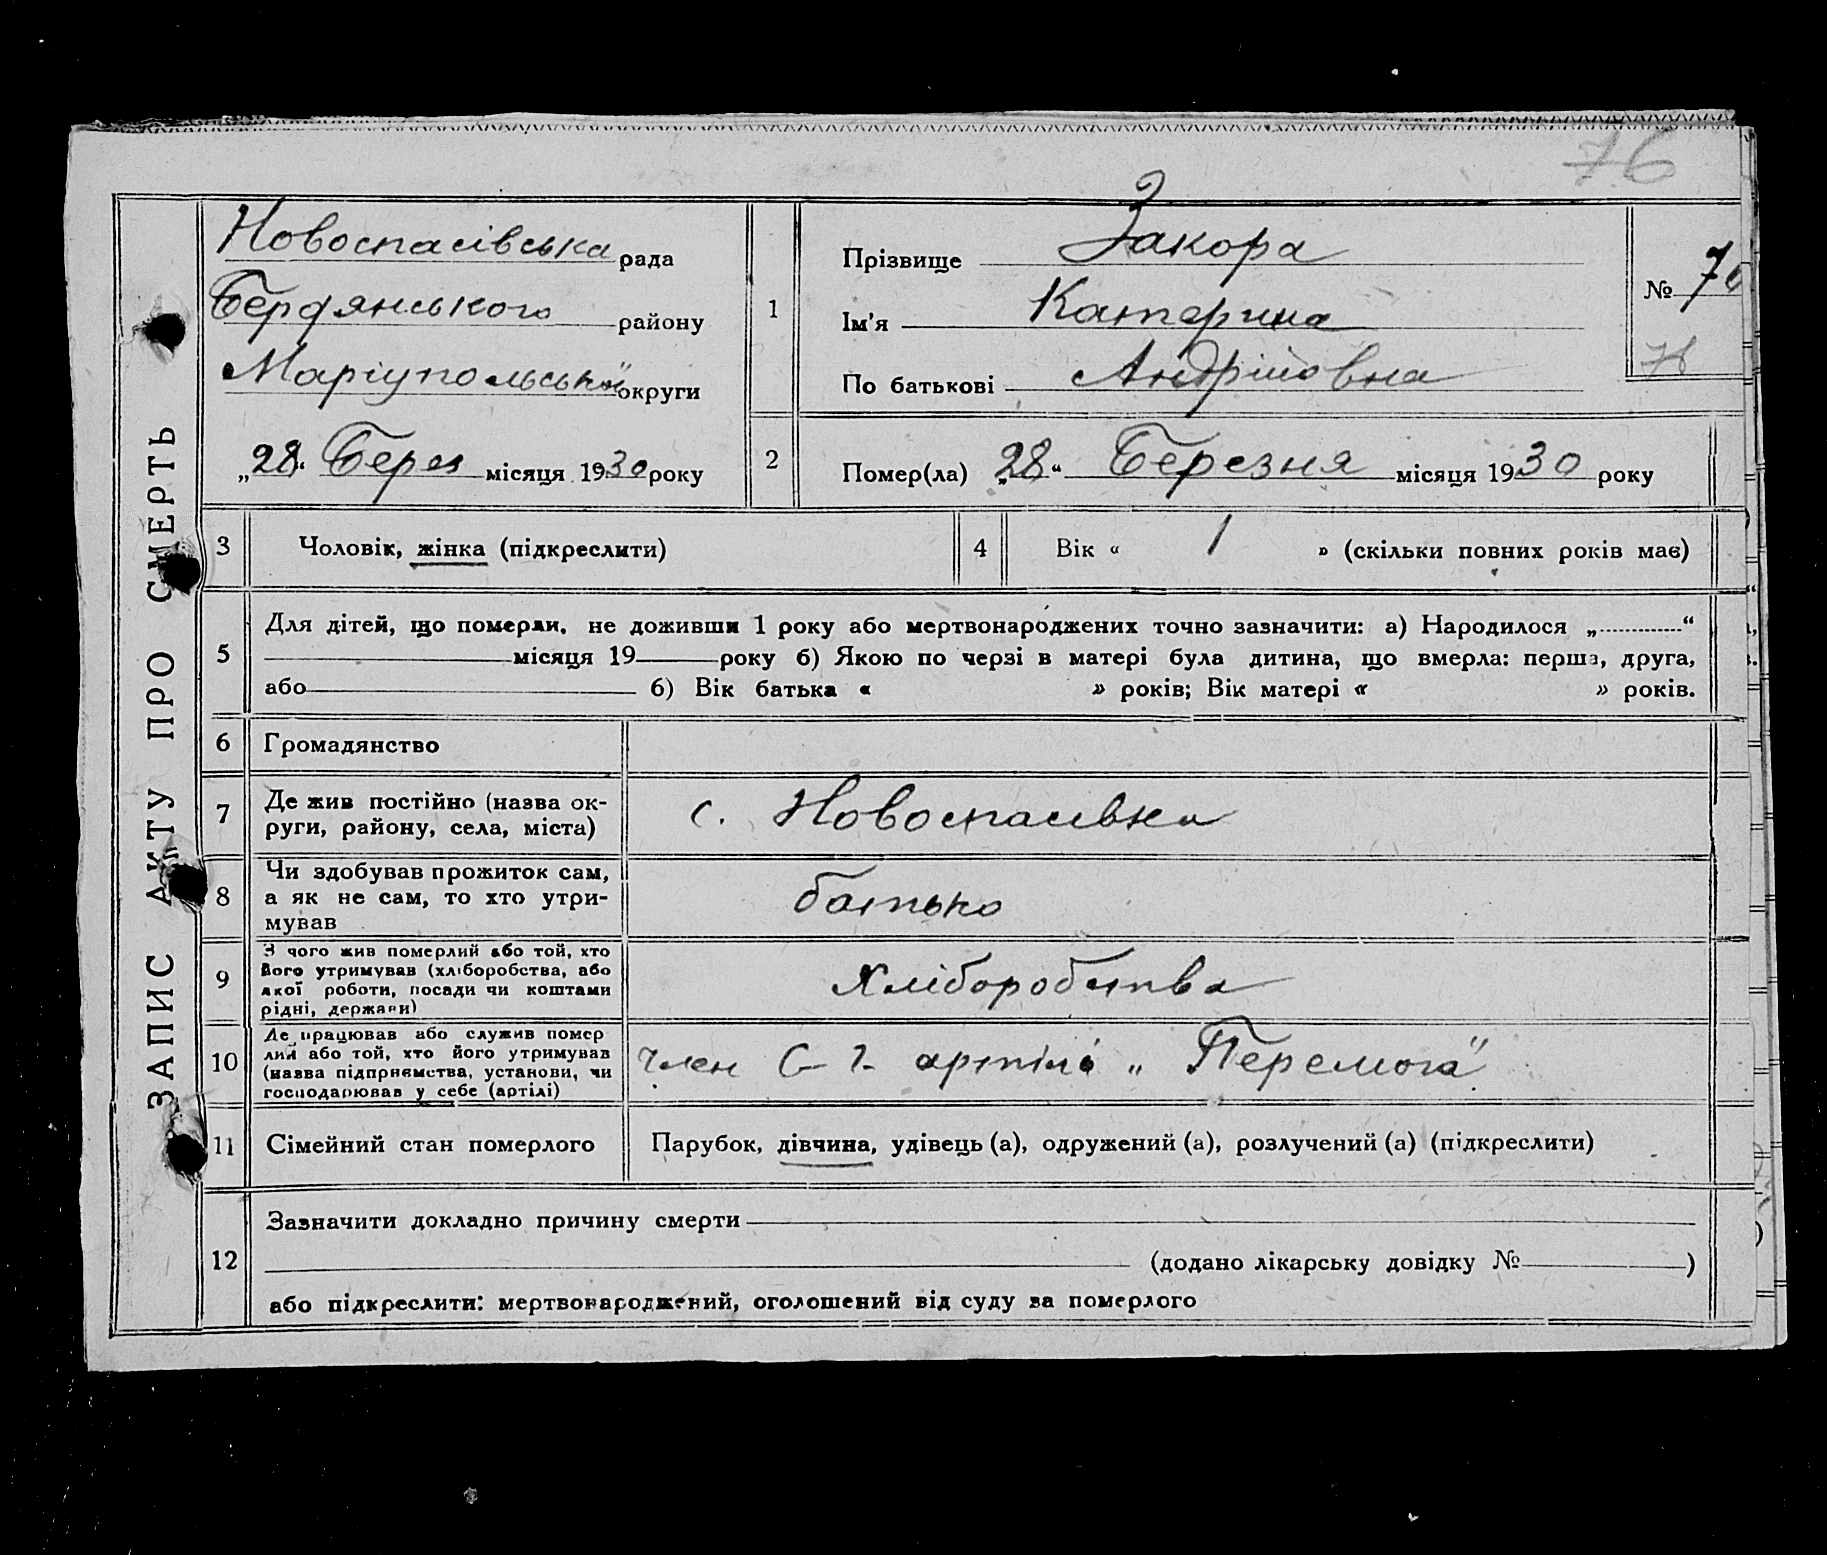 76
ЗАПИС АКТУ ПРО СМЕРТЬ
Новоспасівська рада
Бердянського району
Маріупольської округи
„28“ Берез місяця 1930 року
1
Прізвище Закора
Ім'я Катерина
По батькові Андрійовна
№ 76
76
2
Помер(ла) „28“ Березня місяця 1930 року
3
Чоловік, жінка (підкреслити)
4
Вік « 1 » (скільки повних років має)
5
Для дітей, що померли, не доживши 1 року або мертвонароджених точно зазначити: а) Народилося „ “
місяця 19 року б) Якою по черзі в матері була дитина, що вмерла: перша, друга,
або б) Вік батька « » років; Вік матері « » років.
6
Громадянство
7
Де жив постійно (назва ок-
руги, району, села, міста)
с. Новоспасівка
8
Чи здобував прожиток сам,
а як не сам, то хто утри-
мував
батько
9
З чого жив померлий або той, хто
його утримував (хліборобства, або
якої роботи, посади чи коштами
рідні, держави)
Хліборобства
10
Де працював або служив помер
лий або той, хто його утримував
(назва підприємства, установи, чи
господарював у себе (артілі)
член С-г. артілі „Перемога“
11
Сімейний стан померлого
Парубок, дівчина, удівець (а), одружений (а), розлучений (а) (підкреслити)
12
Зазначити докладно причину смерти
(додано лікарську довідку № )
або підкреслити: мертвонароджений, оголошений від суду за померлого